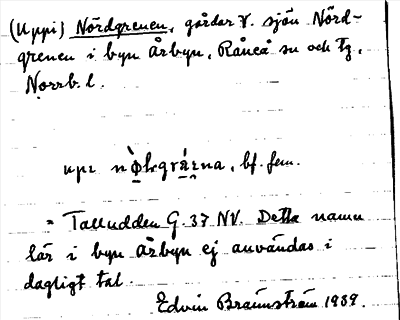 (Uppi) Nördgrenen, gårdar V. sjön Nörd-
grenen i byn Årbyn, Råneå sn och tg,
Norrb. l.
upı nø̀kgrä́ṛna, bf. fem.
= Talludden G. 37 NV. Detta namn
lär i byn Årbyn ej användas i
dagligt tal.
Edvin Brännström 1939.